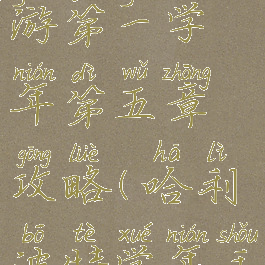 游第一学
nián dì wǔ zhāng
年第五章
gōng lüè hā lì
攻略(哈利
bō tè xué nián shǒu
波特学年手